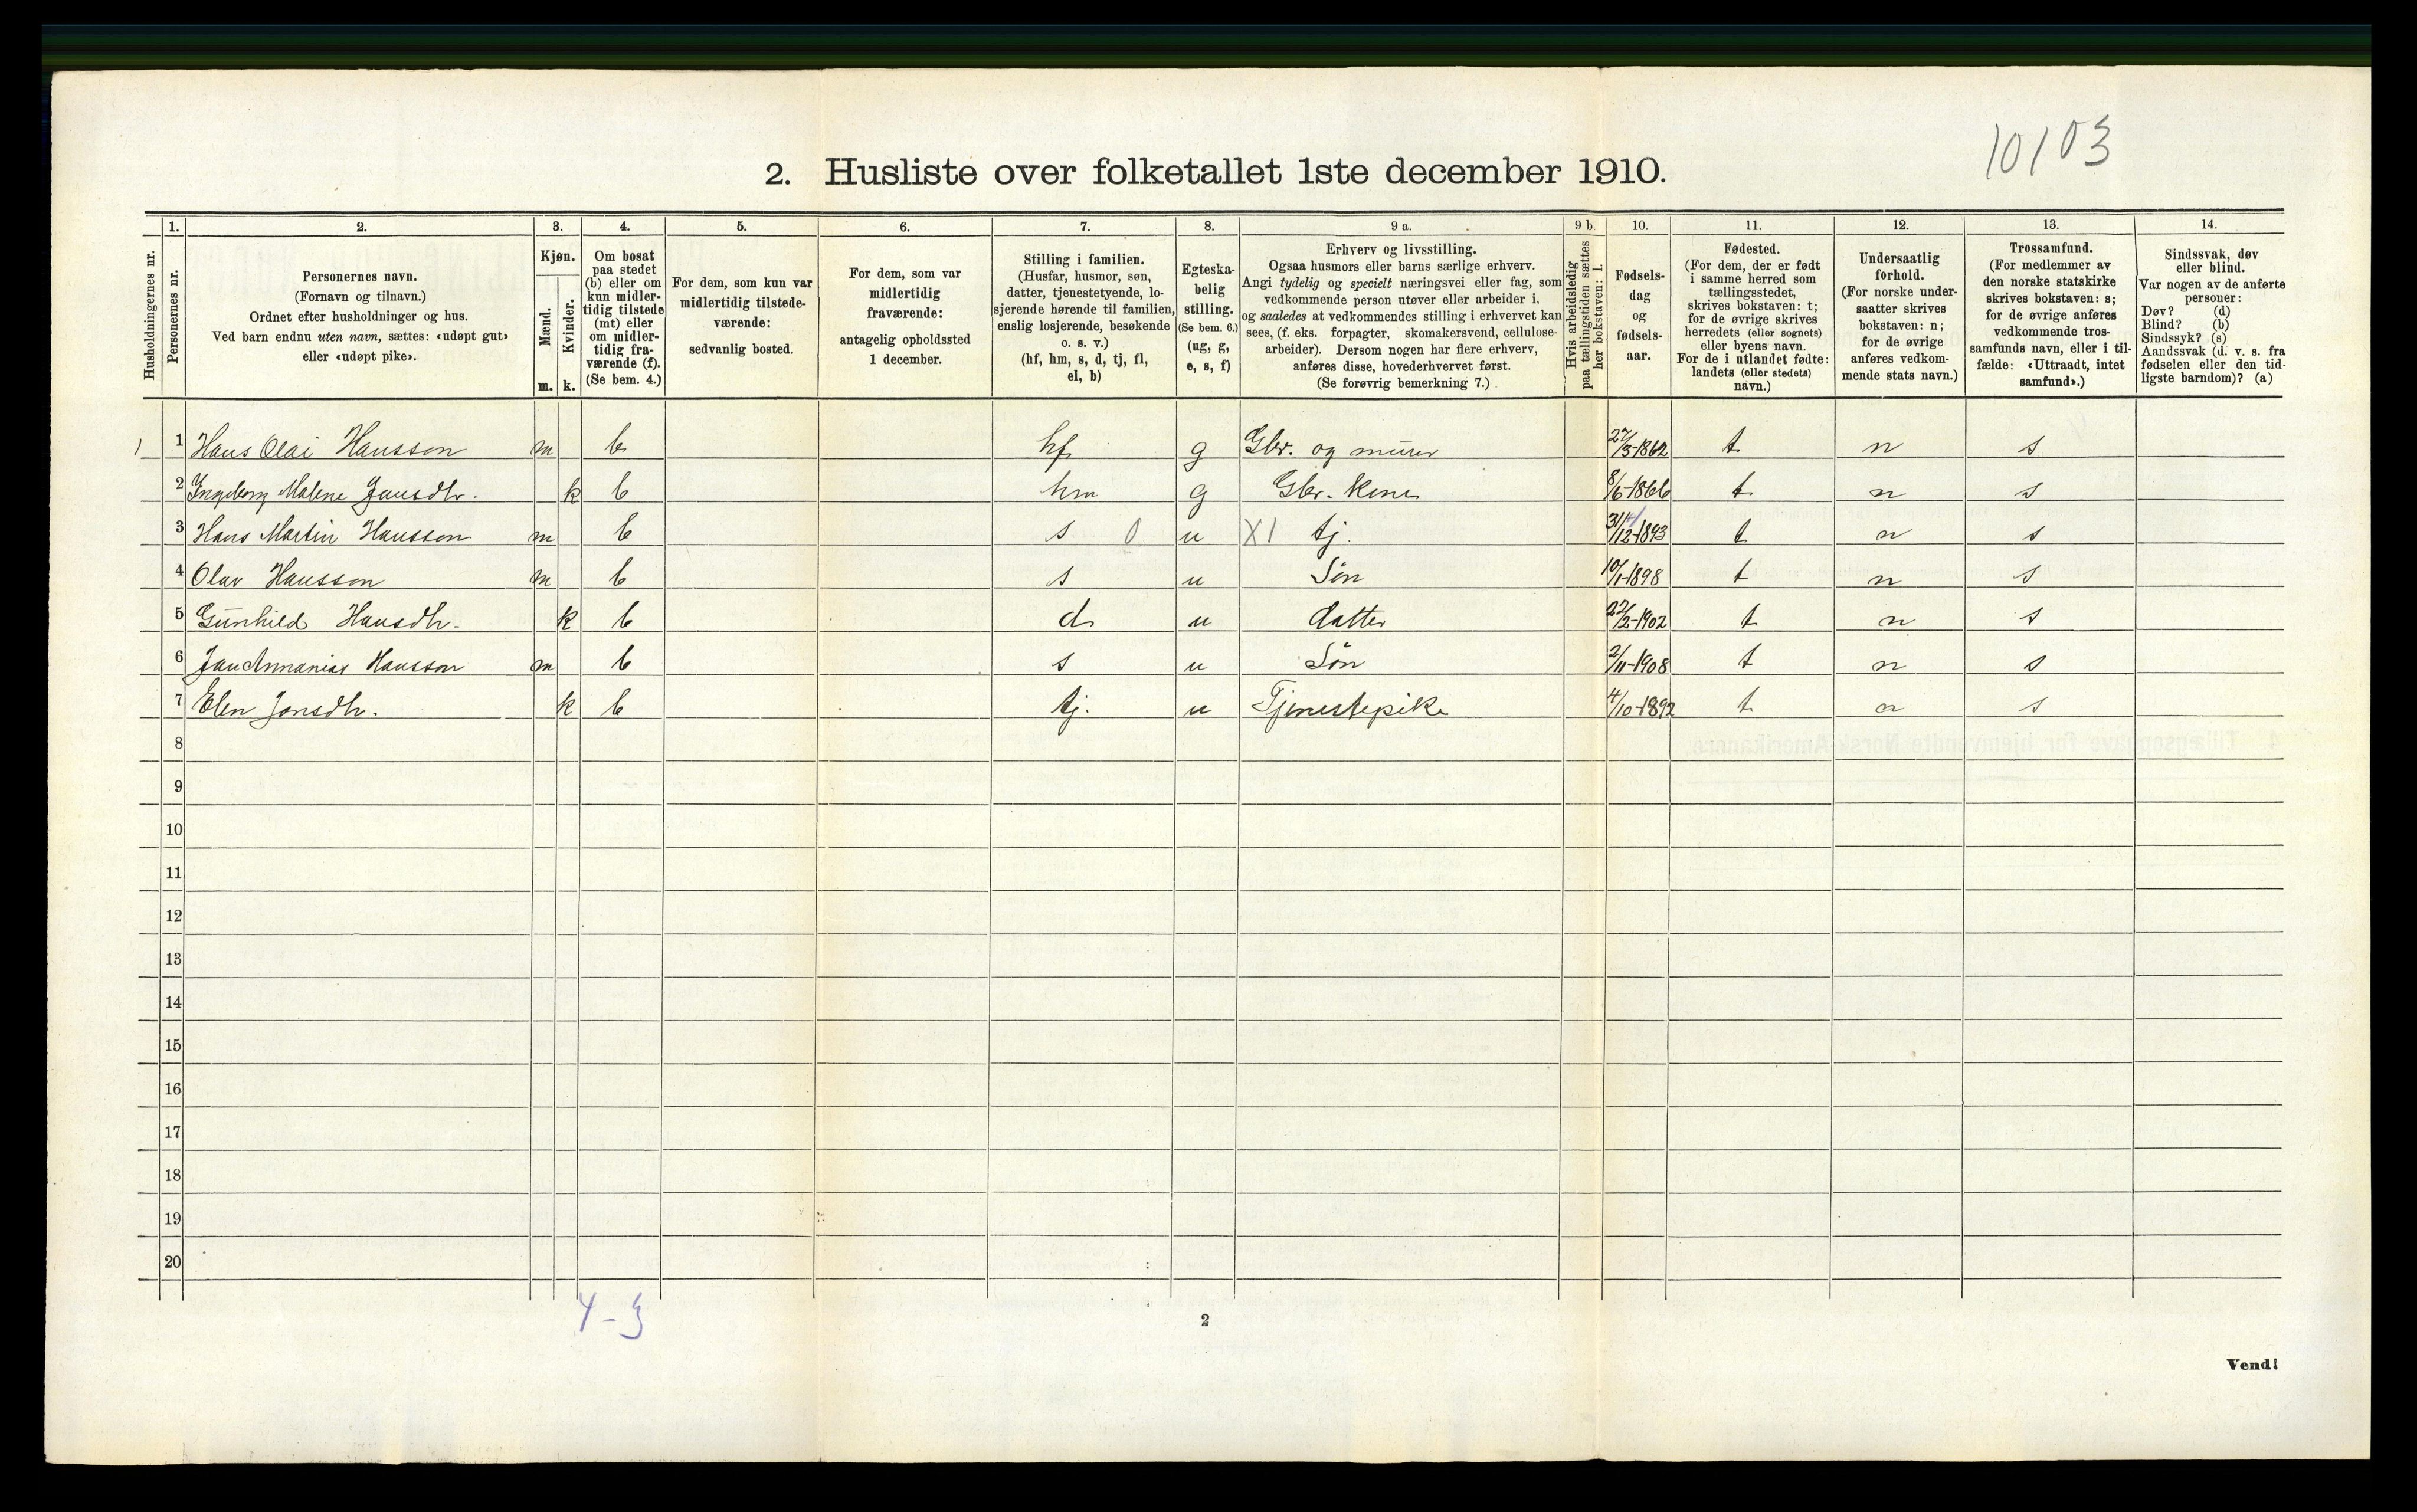 10103
2. Husliste over folketallet 1ste december 1910.
Husholdningernes nr.
1. Personernes nr.
2. Personernes navn.
(Fornavn og tilnavn.)
Ordnet efter husholdninger og hus.
Ved barn endnu uten navn, sættes: «udøpt gut»
eller «udøpt pike».
3. Kjøn.
Mænd. m.
Kvinder. k.
4. Om bosat
paa stedet
(b) eller om
kun midler-
tidig tilstede
(mt) eller
om midler-
tidig fra-
værende (f).
(Se bem. 4.)
5. For dem, som kun var
midlertidig tilstede-
værende:
sedvanlig bosted.
6. For dem, som var
midlertidig
fraværende:
antagelig opholdssted
1 december.
7. Stilling i familien.
(Husfar, husmor, søn,
datter, tjenestetyende, lo-
sjerende hørende til familien,
enslig losjerende, besøkende
o. s. v.)
(hf, hm, s, d, tj, fl,
el, b)
8. Egteska-
belig
stilling.
(Se bem. 6.)
(ug, g,
e, s, f)
9 a. Erhverv og livsstilling.
Ogsaa husmors eller barns særlige erhverv.
Angi tydelig og specielt næringsvei eller fag, som
vedkommende person utøver eller arbeider i,
og saaledes at vedkommendes stilling i erhvervet kan
sees, (f. eks. forpagter, skomakersvend, cellulose-
arbeider). Dersom nogen har flere erhverv,
anføres disse, hovederhvervet først.
(Se forøvrig bemerkning 7.)
9 b. Hvis arbeidsledig
paa tællingstiden sættes
her bokstaven: l.
10. Fødsels-
dag
og
fødsels-
aar.
11. Fødested.
(For dem, der er født
i samme herred som
tællingsstedet,
skrives bokstaven: t;
for de øvrige skrives
herredets (eller sognets)
eller byens navn.
For de i utlandet fødte:
landets (eller stedets)
navn.)
12. Undersaatlig
forhold.
(For norske under-
saatter skrives
bokstaven: n;
for de øvrige
anføres vedkom-
mende stats navn.)
13. Trossamfund.
(For medlemmer av
den norske statskirke
skrives bokstaven: s;
for de øvrige anføres
vedkommende tros-
samfunds navn, eller i til-
fælde: «Uttraadt, intet
samfund».)
14. Sindssvak, døv
eller blind.
Var nogen av de anførte
personer:
Døv? (d)
Blind? (b)
Sindssyk? (s)
Aandssvak (d. v. s. fra
fødselen eller den tid-
ligste barndom)? (a)
1 1 Hans Olai Hansson m b hf g Gbr. og murer 27/3-1862 t n s
2 Ingeborg Malene Jansdtr. k b hm g Gbr. Kone 8/6-1866 t n s
3 Hans Martin Hansson m b s 0 u X1 tj. 31/12-1893 t n s
4 Olav Hansson m b s u Søn 10/1-1898 t n s
5 Gunhild Hansdtr. k b d u datter 22/2-1902 t n s
6 Jan Annanias Hansson m b s u Søn 2/11-1908 t n s
7 Elen Jonsdtr. k b tj. u Tjenestepike 4/10-1892 t n s
8
9
10
11
12
13
14
15
16
17
18
19
20
4-3
2
Vend!